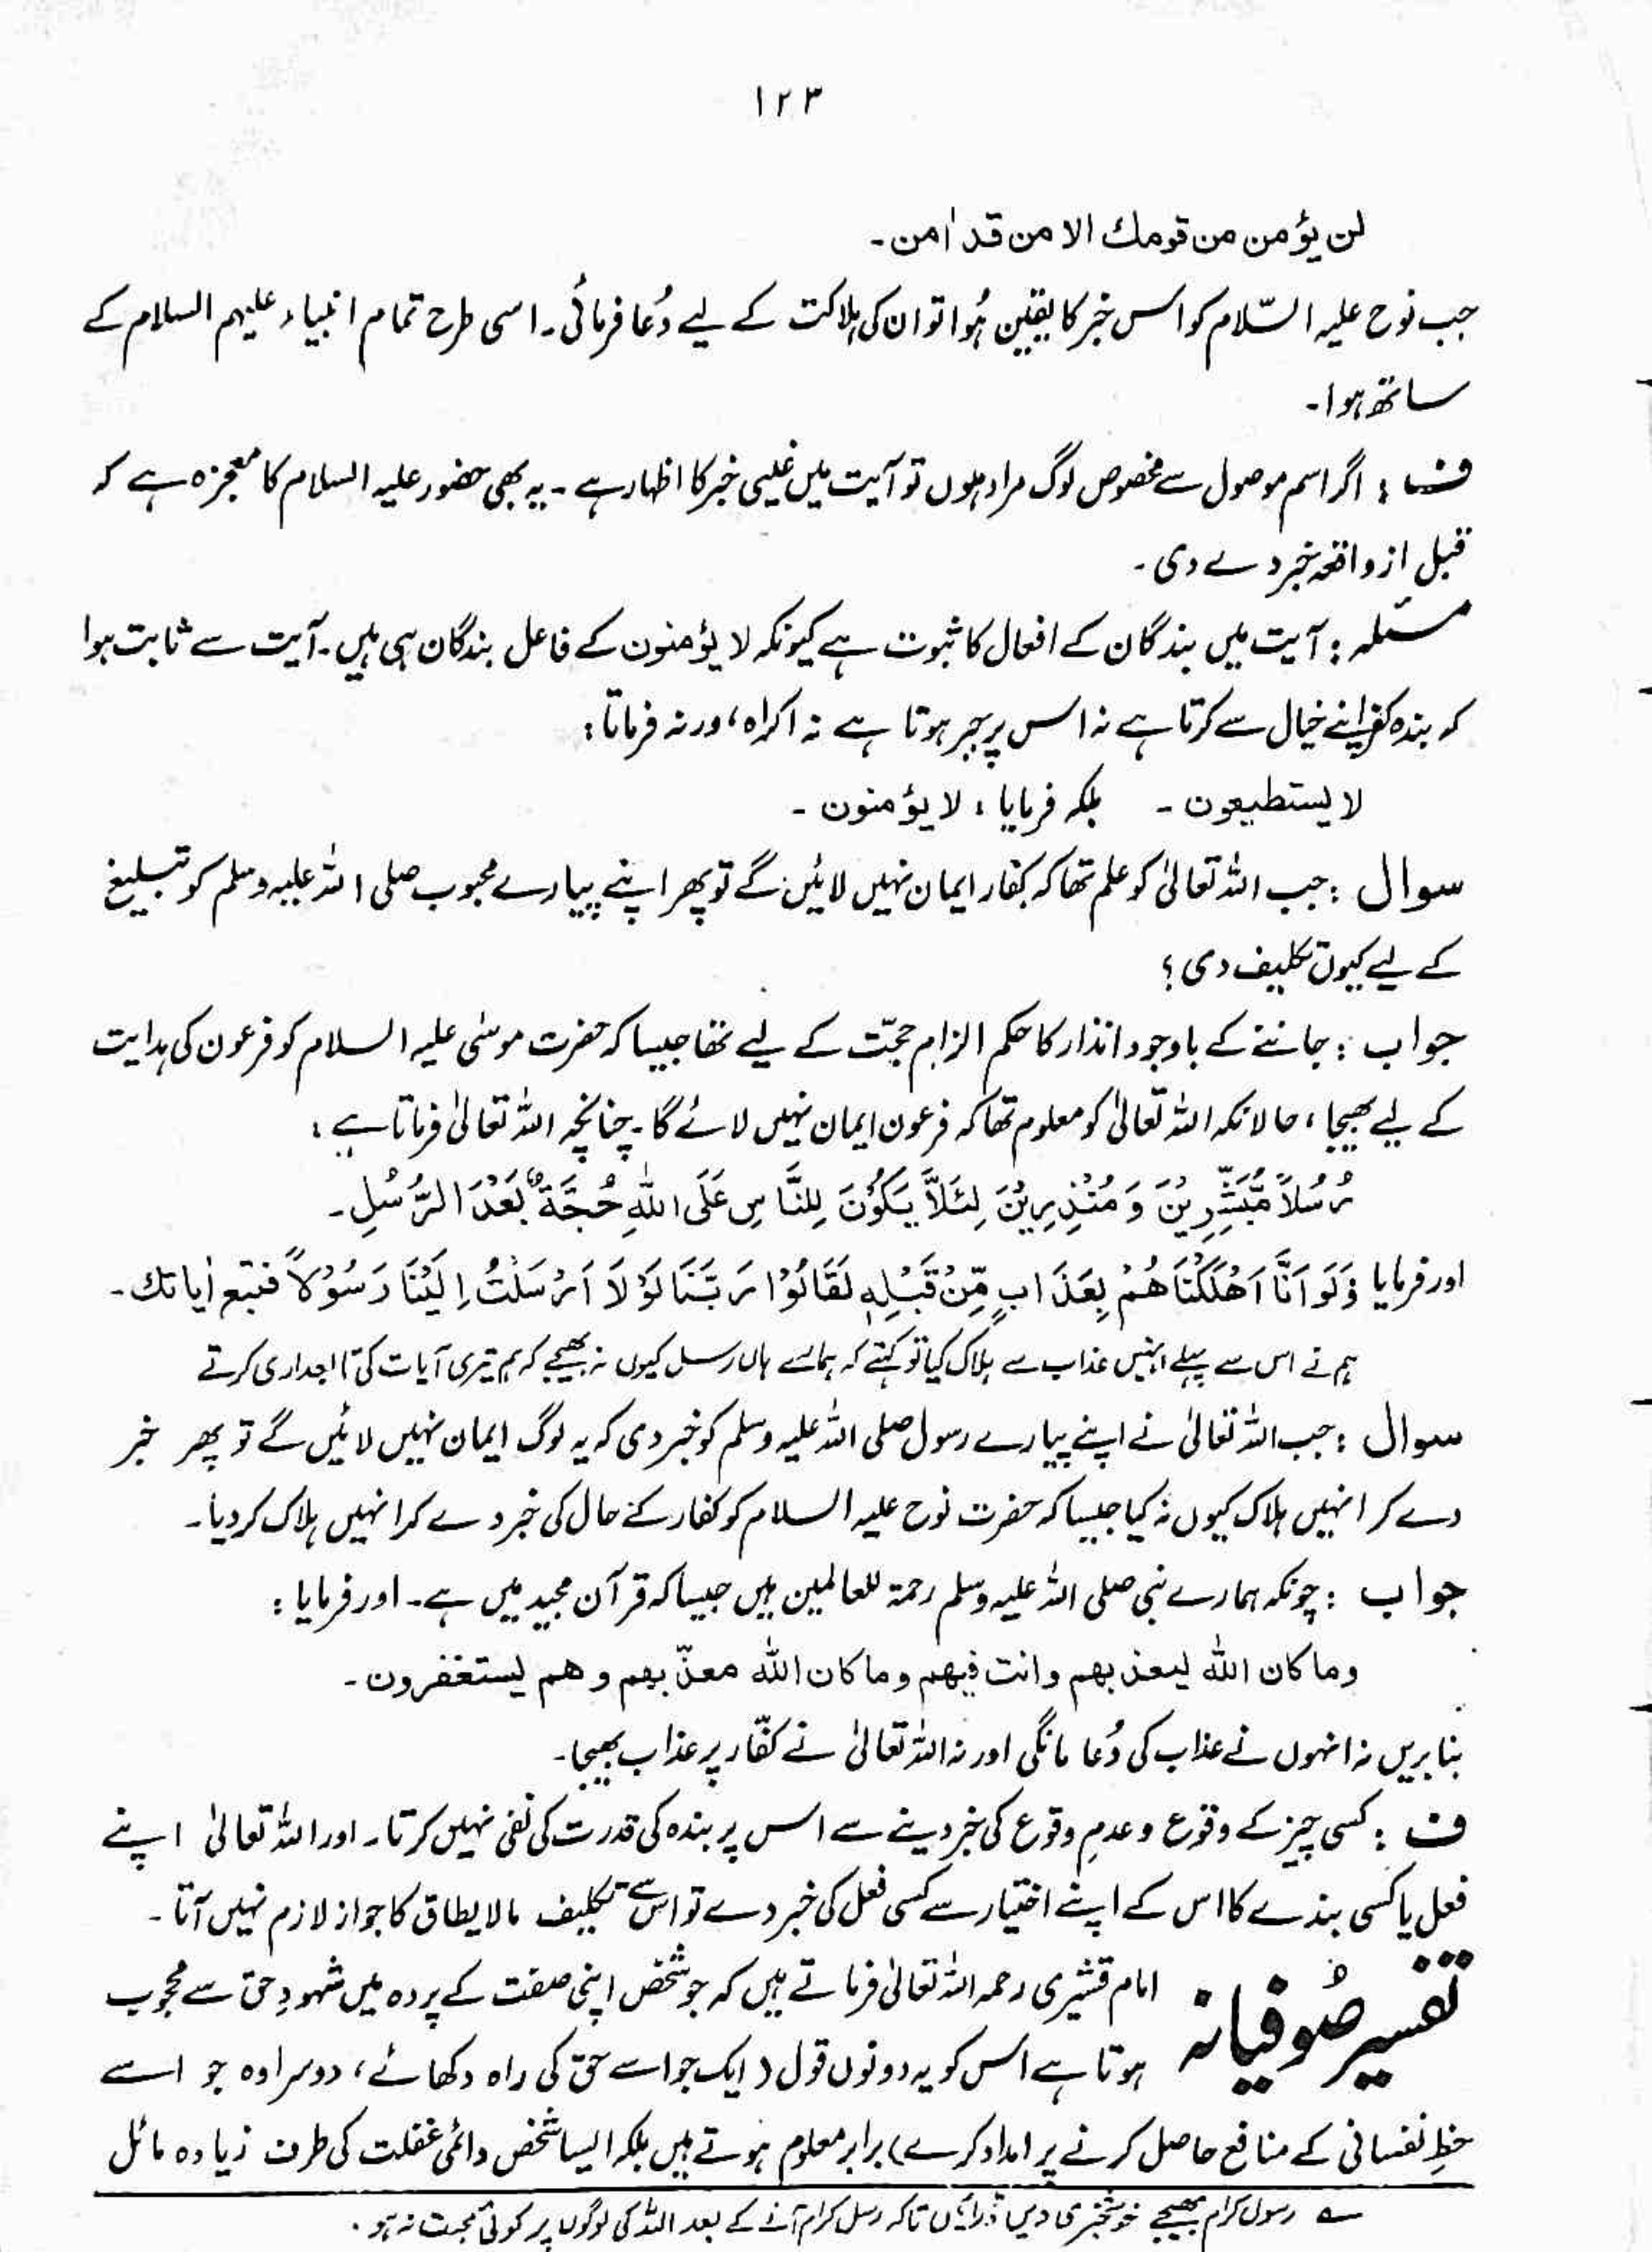 ۱۲۳
لن یؤمن من قومك الا من قد اٰمن۔
جب نوح علیہ السّلام کو اس خبر کا یقین ہُوا تو ان کی ہلاکت کے لیے دُعا فرمائی۔ اسی طرح تمام انبیاء علیہم السلام کے
ساتھ ہوا۔
ف : اگر اسم موصول سے مخصوص لوگ مراد ہوں تو آیت میں غیبی خبر کا اظہار ہے۔ یہ بھی حضور علیہ السلام کا معجزہ ہے کہ
قبل از واقعہ خبر دے دی۔
مسئلہ : آیت میں بندگان کے افعال کا ثبوت ہے کیونکہ لا یؤمنون کے فاعل بندگان ہی ہیں۔ آیت سے ثابت ہوا
کہ بندہ کفر اپنے خیال سے کرتا ہے نہ اس پر جبر ہوتا ہے نہ اکراہ، ورنہ فرماتا :
لا یستطیعون ۔ بلکہ فرمایا : لا یؤمنون ۔
سوال : جب اللہ تعالیٰ کو علم تھا کہ کفار ایمان نہیں لائیں گے تو پھر اپنے پیارے محبوب صلی اللہ علیہ وسلم کو تبلیغ
کے لیے کیوں تکلیف دی ؟
جواب : جاننے کے باوجود انذار کا حکم الزام حجّت کے لیے تھا جیسا کہ حضرت موسٰی علیہ السلام کو فرعون کی ہدایت
کے لیے بھیجا ، حالانکہ اللہ تعالیٰ کو معلوم تھا کہ فرعون ایمان نہیں لائے گا۔ چنانچہ اللہ تعالیٰ فرماتا ہے :
رُسُلاً مُّبَشِّرِیْنَ وَ مُنْذِرِیْنَ لِئَلاَّ یَکُوْنَ لِلنَّاسِ عَلَی اللّٰہِ حُجَّۃٌ بَعْدَ الرُّسُلِ۔
اور فرمایا وَلَوْ اَنَّا اَھْلَکْنَاھُمْ بِعَذَابٍ مِّنْ قَبْلِہٖ لَقَالُوْا رَبَّنَا لَوْ لَا اَرْسَلْتَ اِلَیْنَا رَسُوْلاً فنتبع اٰیاتك۔
ہم نے اس سے پہلے انہیں عذاب سے ہلاک کیا تو کہتے کہ ہمارے ہاں رسل کیوں نہ بھیجے کہ ہم تیری آیات کی تابعداری کرتے
سوال : جب اللہ تعالیٰ نے اپنے پیارے رسول صلی اللہ علیہ وسلم کو خبر دی کہ یہ لوگ ایمان نہیں لائیں گے تو پھر خبر
دے کر انہیں ہلاک کیوں نہ کیا جیسا کہ حضرت نوح علیہ السلام کو کفار کے حال کی خبر دے کر انہیں ہلاک کر دیا۔
جواب : چونکہ ہمارے نبی صلی اللہ علیہ وسلم رحمۃ للعالمین ہیں جیسا کہ قرآن مجید میں ہے۔ اور فرمایا :
وما کان اللّٰہ لیعذبھم وانت فیھم وما کان اللّٰہ معذّبھم وھم یستغفرون۔
بنا بریں نہ انہوں نے عذاب کی دُعا مانگی اور نہ اللہ تعالیٰ نے کفّار پر عذاب بھیجا۔
ف : کسی چیز کے وقوع و عدمِ وقوع کی خبر دینے سے اس پر بندہ کی قدرت کی نفی نہیں کرتا۔ اور اللہ تعالیٰ اپنے
فعل یا کسی بندے کا اس کے اپنے اختیار سے کسی فعل کی خبر دے تو اس سے تکلیف مالا یطاق کا جواز لازم نہیں آتا۔
تفسیر صُوفیانہ امام قشیری رحمہ اللہ تعالیٰ فرماتے ہیں کہ جو شخص اپنی صفت کے پردہ میں شہودِ حق سے محجوب
ہوتا ہے اس کو یہ دونوں قول (ایک جو اسے حق کی راہ دکھائے، دوسرا وہ جو اسے
حظِ نفسانی کے منافع حاصل کرنے پر امداد کرے) برابر معلوم ہوتے ہیں بلکہ ایسا شخص دائمی غفلت کی طرف زیادہ مائل
ے رسول کرام بھیجے خوشخبری دیں ڈرائیں تاکہ رسل کرام آنے کے بعد اللہ کی لوگوں پر کوئی حجت نہ ہو۔